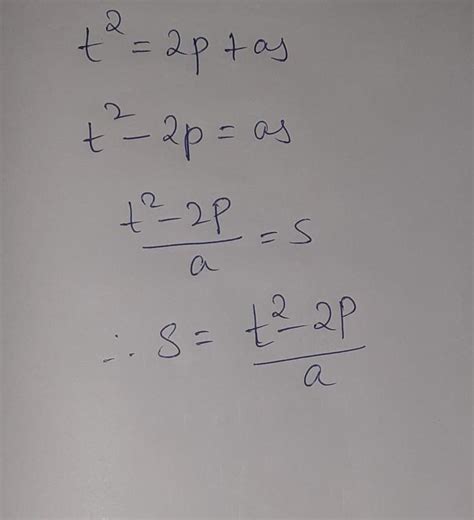 t² = 2p + as
t² - 2p = as
(t² - 2p)/a = s
∴ s = (t² - 2p)/a